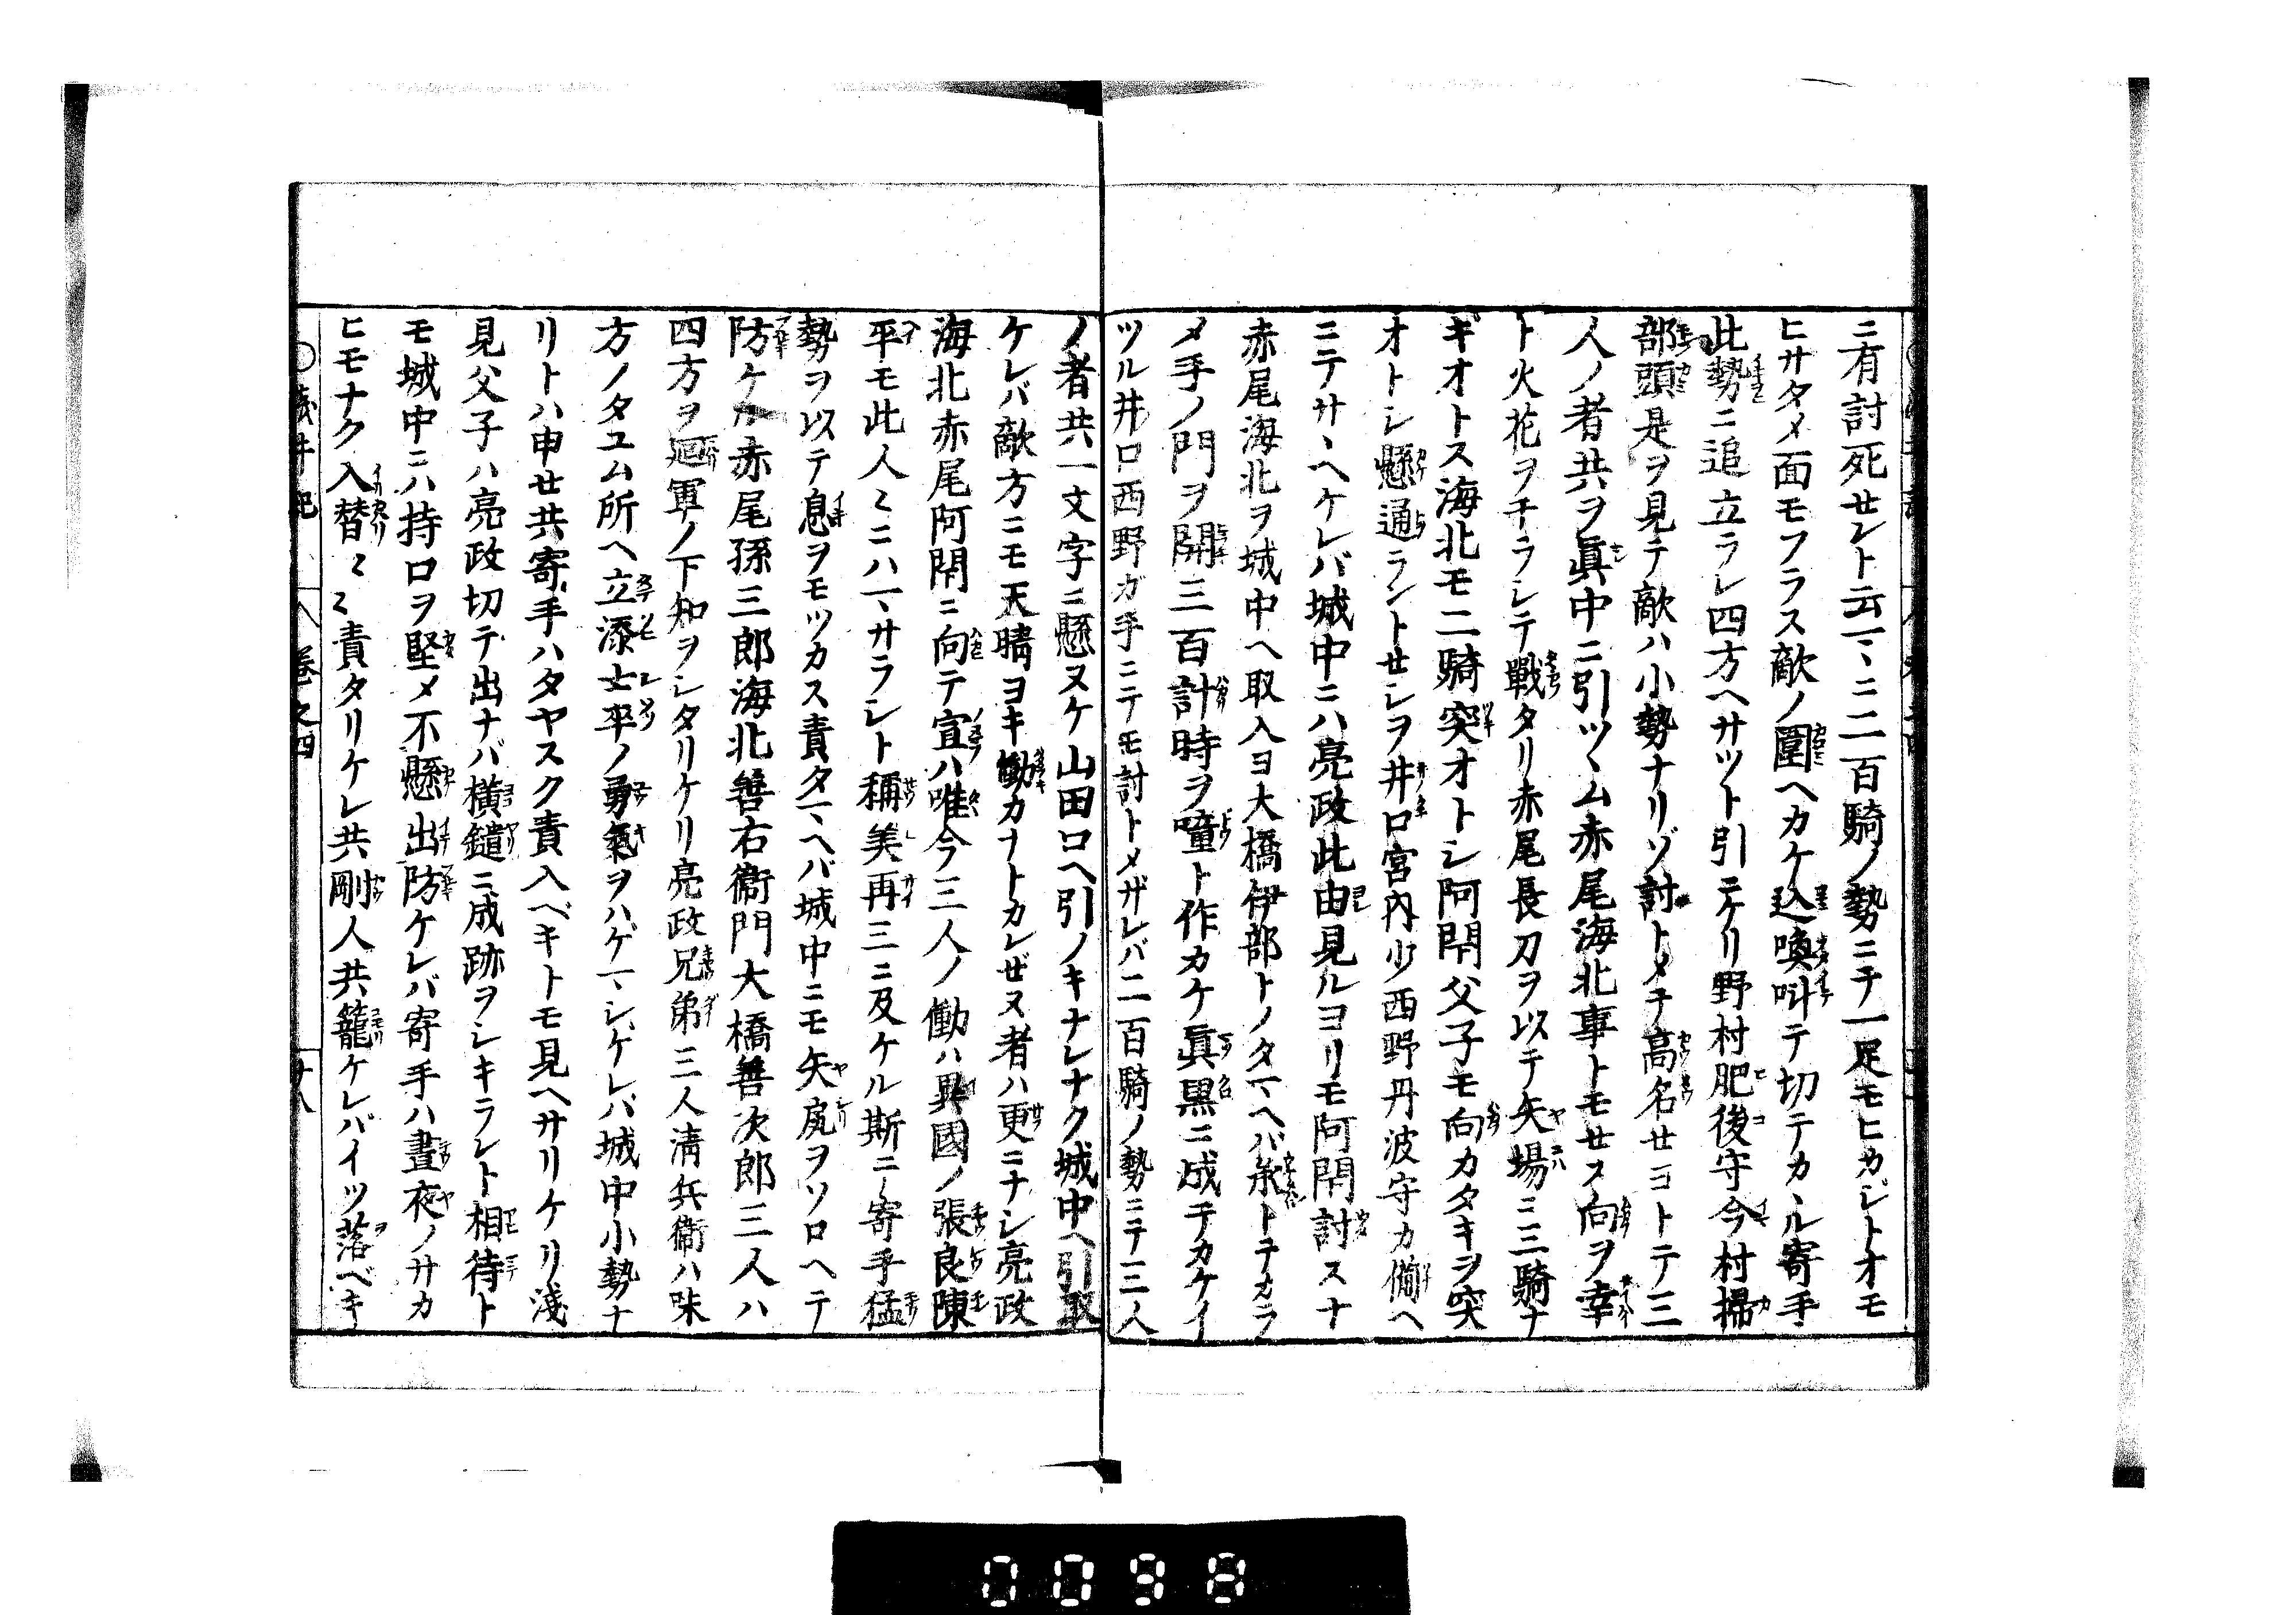 ニ有討死セント云マヽニ二百騎ノ勢ニテ一足モヒカジトオモ
ヒサタメ面モフラス敵ノ圍ヘカケ込喚叫テ切テカヽル寄手
此勢ニ追立ラレ四方ヘサツト引ニケリ野村肥後守今村掃
部頭是ヲ見テ敵ハ小勢ナリゾ討トメテ高名セヨトテ三
人ノ者共ヲ眞中ニ引ツヽム赤尾海北事トモセス向ヲ幸
ト火花ヲチラシテ戰タリ赤尾長刀ヲ以テ矢場ニ三騎ナ
ギオトス海北モ二騎突オトシ阿閇父子モ向カタキヲ突
オトシ懸通ラントセシヲ井口宮内少西野丹波守カ備ヘ
ニテサヽヘケレバ城中ニハ亮政此由見ルヨリモ阿閇討スナ
赤尾海北ヲ城中ヘ取入ヨ大橋伊部トノタマヘバ承トテカラ
メ手ノ門ヲ開三百計時ヲ噇ト作カケ眞黒ニ成テカケイ
ツル井口西野ガ手ニテモ討トメザレバ二百騎ノ勢ニテ三人
ノ者共一文字ニ懸ヌケ山田口ヘ引ノキナレナク城中ヘ引取
ケレバ敵方ニモ天晴ヨキ働カナトカンゼヌ者ハ更ニナシ亮政
海北赤尾阿閇ニ向テ宣ハ唯今三人ノ働ハ異國ノ張良陳
平モ此人々ニハマサラシト稱美再三ニ及ケル斯ニ寄手猛
勢ヲ以テ息ヲモツカス責タマヘバ城中ニモ矢尻ヲソロヘテ
防ケル赤尾孫三郎海北善右衞門大橋善次郎三人ハ
四方ヲ廻軍ノ下知ヲシタリケリ亮政兄弟三人淸兵衞ハ味
方ノタユム所ヘ立添士卒ノ勇氣ヲハゲマシケレバ城中小勢ナ
リトハ申セ共寄手ハタヤスク責入ベキトモ見ヘサリケリ淺
見父子ハ亮政切テ出ナバ橫鑓ニ成跡ヲシキラント相待ト
モ城中ニハ持口ヲ堅メ不懸出防ケレバ寄手ハ晝夜ノサカ
ヒモナク入替々々責タリケレ共剛人共籠ケレバイツ落ベキ
卷之四